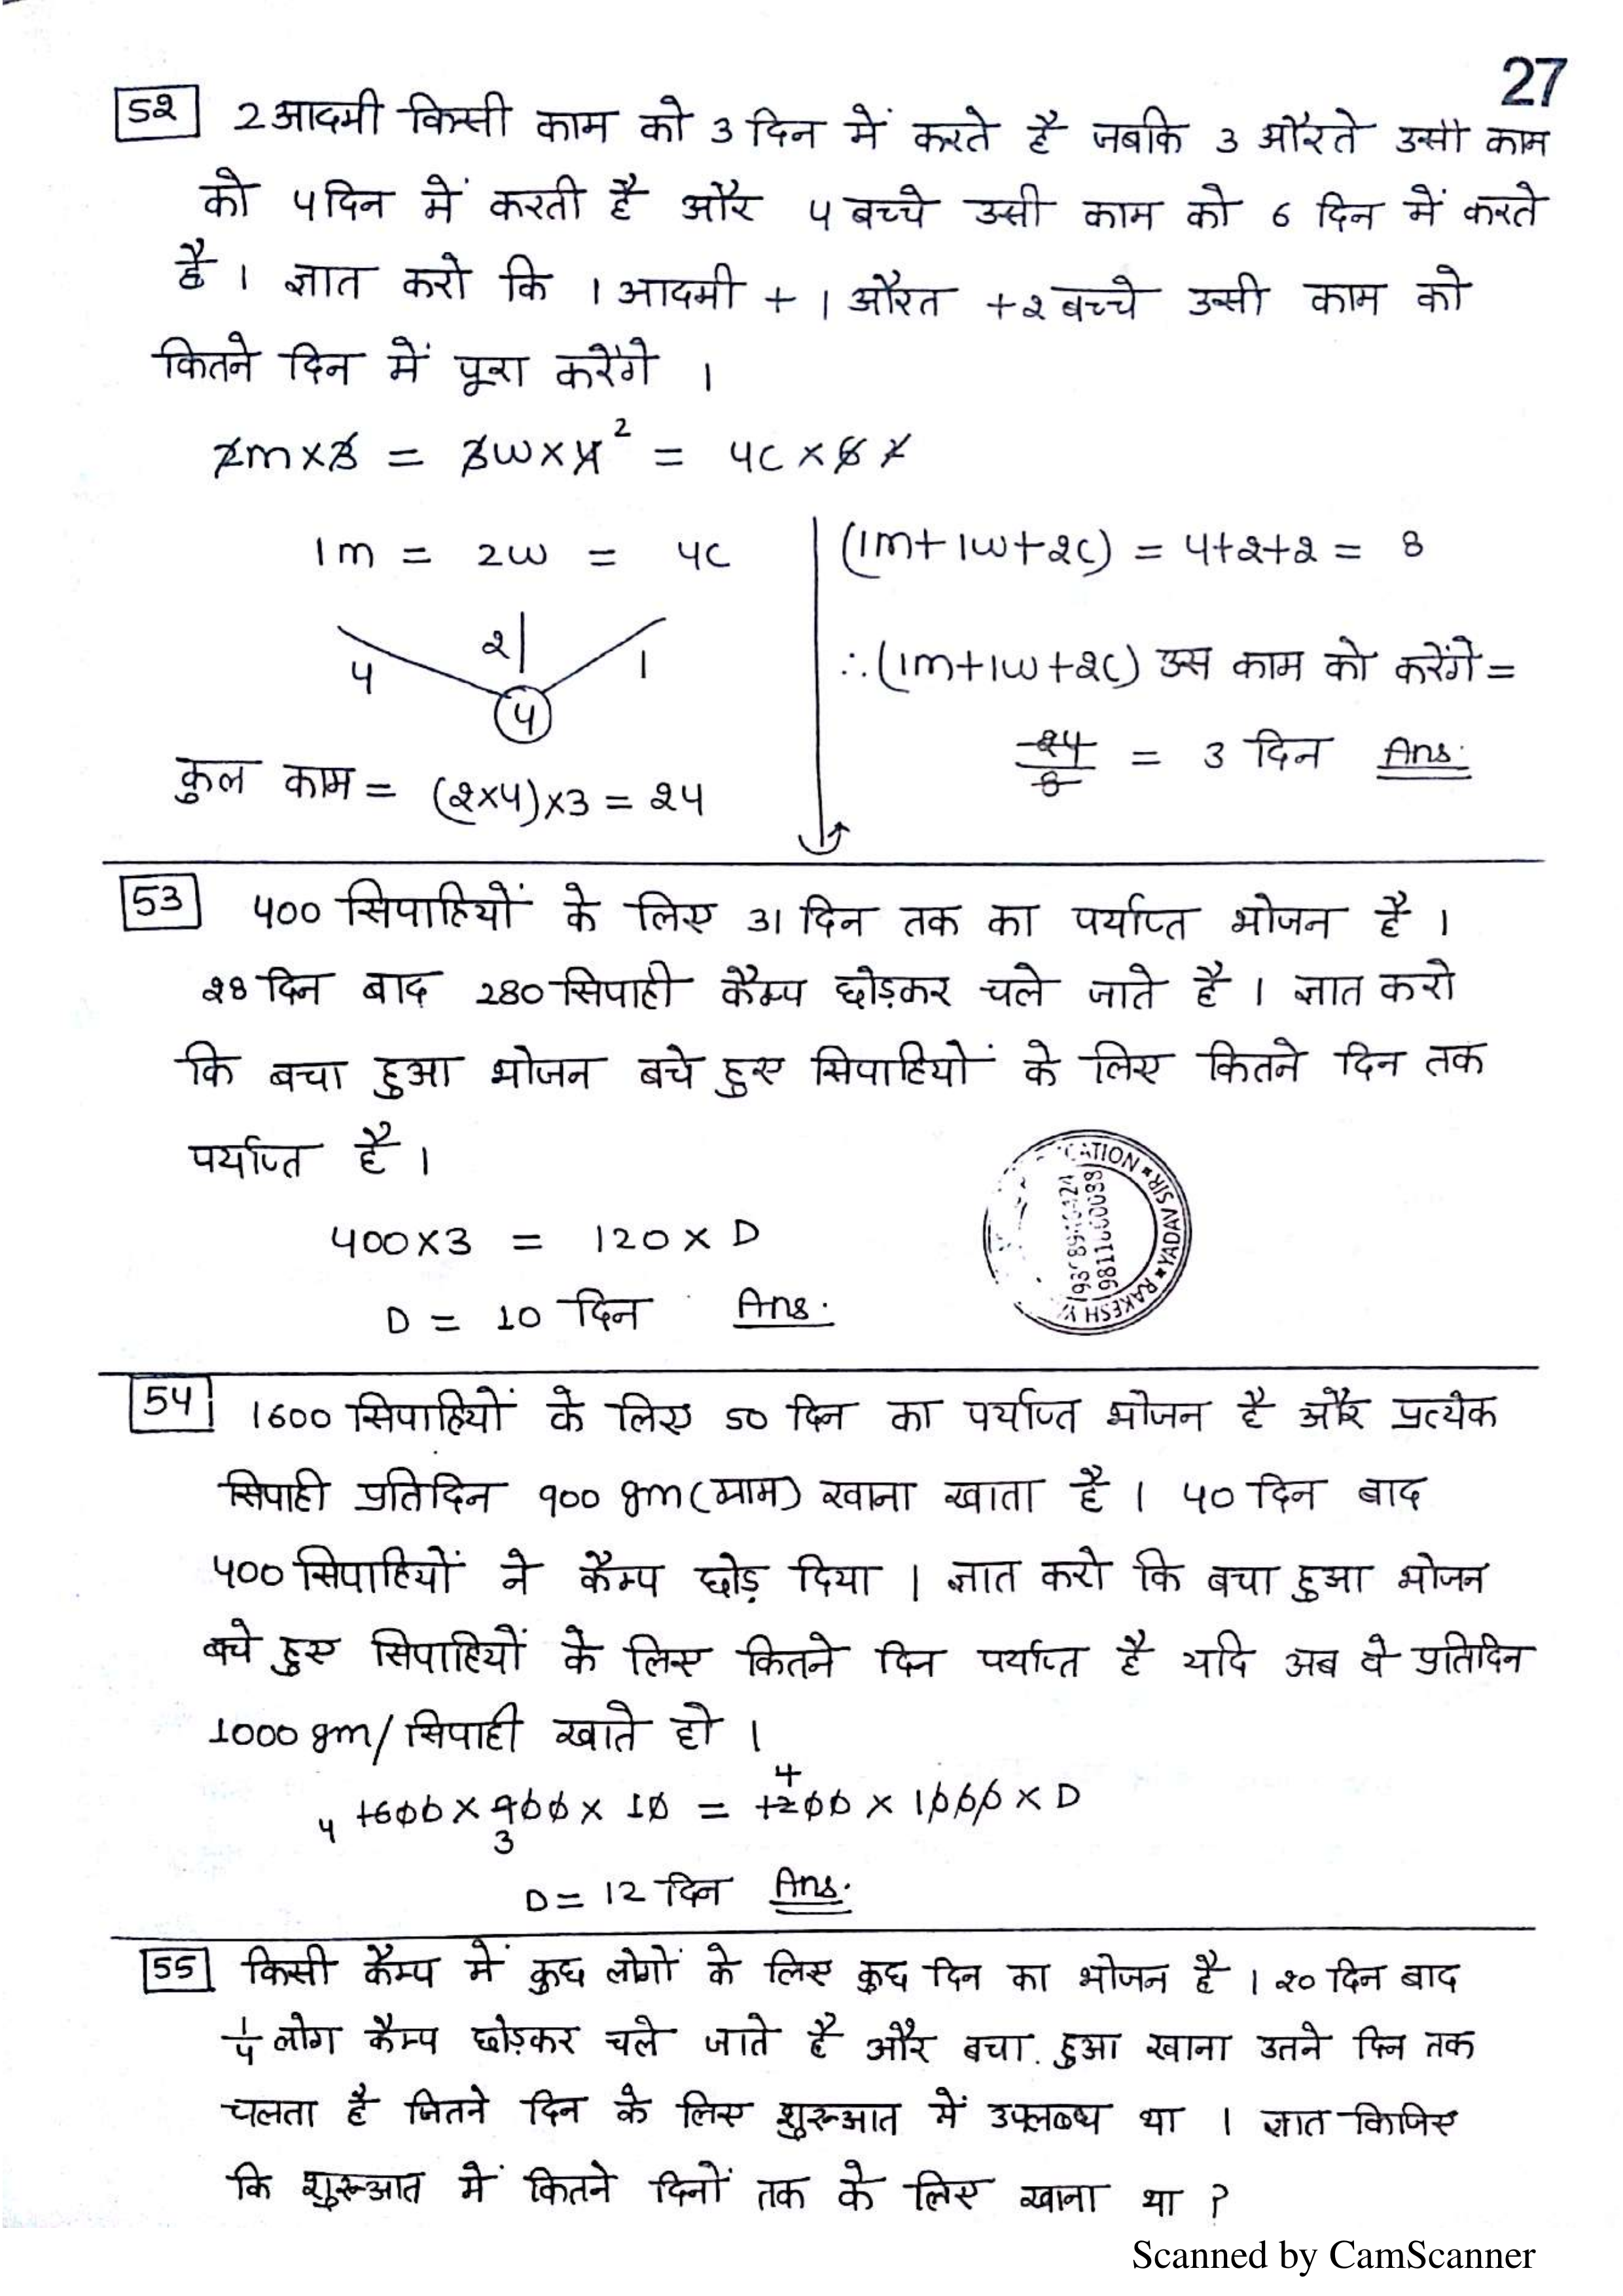 27
52 2 आदमी किसी काम को 3 दिन में करते है जबकि 3 औरते उसी काम
को 4 दिन में करती है और 4 बच्चे उसी काम को 6 दिन में करते
है । ज्ञात करो कि 1 आदमी + 1 औरत + 2 बच्चे उसी काम को
कितने दिन में पूरा करेंगे ।
2m×3 = 3w×4 2 = 4c×6 2
1m = 2w = 4c
4 2 1
4
कुल काम = (2×4)×3 = 24
(1m+1w+2c) = 4+2+2 = 8
∴(1m+1w+2c) उस काम को करेंगे =
24/8 = 3 दिन Ans.
53 400 सिपाहियों के लिए 31 दिन तक का पर्याप्त भोजन है ।
28 दिन बाद 280 सिपाही कैम्प छोड़कर चले जाते है । ज्ञात करो
कि बचा हुआ भोजन बचे हुए सिपाहियों के लिए कितने दिन तक
पर्याप्त है ।
400×3 = 120×D
D = 10 दिन Ans.
RAKESH YADAV SIR
54 1600 सिपाहियों के लिए 50 दिन का पर्याप्त भोजन है और प्रत्येक
सिपाही प्रतिदिन 900 gm(ग्राम) खाना खाता है । 40 दिन बाद
400 सिपाहियों ने कैम्प छोड़ दिया । ज्ञात करो कि बचा हुआ भोजन
बचे हुए सिपाहियों के लिए कितने दिन पर्याप्त है यदि अब वे प्रतिदिन
1000 gm/सिपाही खाते हो ।
4 1600 × 900 × 10 = 1200 × 1000 × D
4
3
D = 12 दिन Ans.
55 किसी कैम्प में कुछ लोगों के लिए कुछ दिन का भोजन है । 20 दिन बाद
1/4 लोग कैम्प छोड़कर चले जाते है और बचा हुआ खाना उतने दिन तक
चलता है जितने दिन के लिए शुरूआत में उपलब्ध था । ज्ञात किजिए
कि शुरूआत में कितने दिनों तक के लिए खाना था ?
Scanned by CamScanner